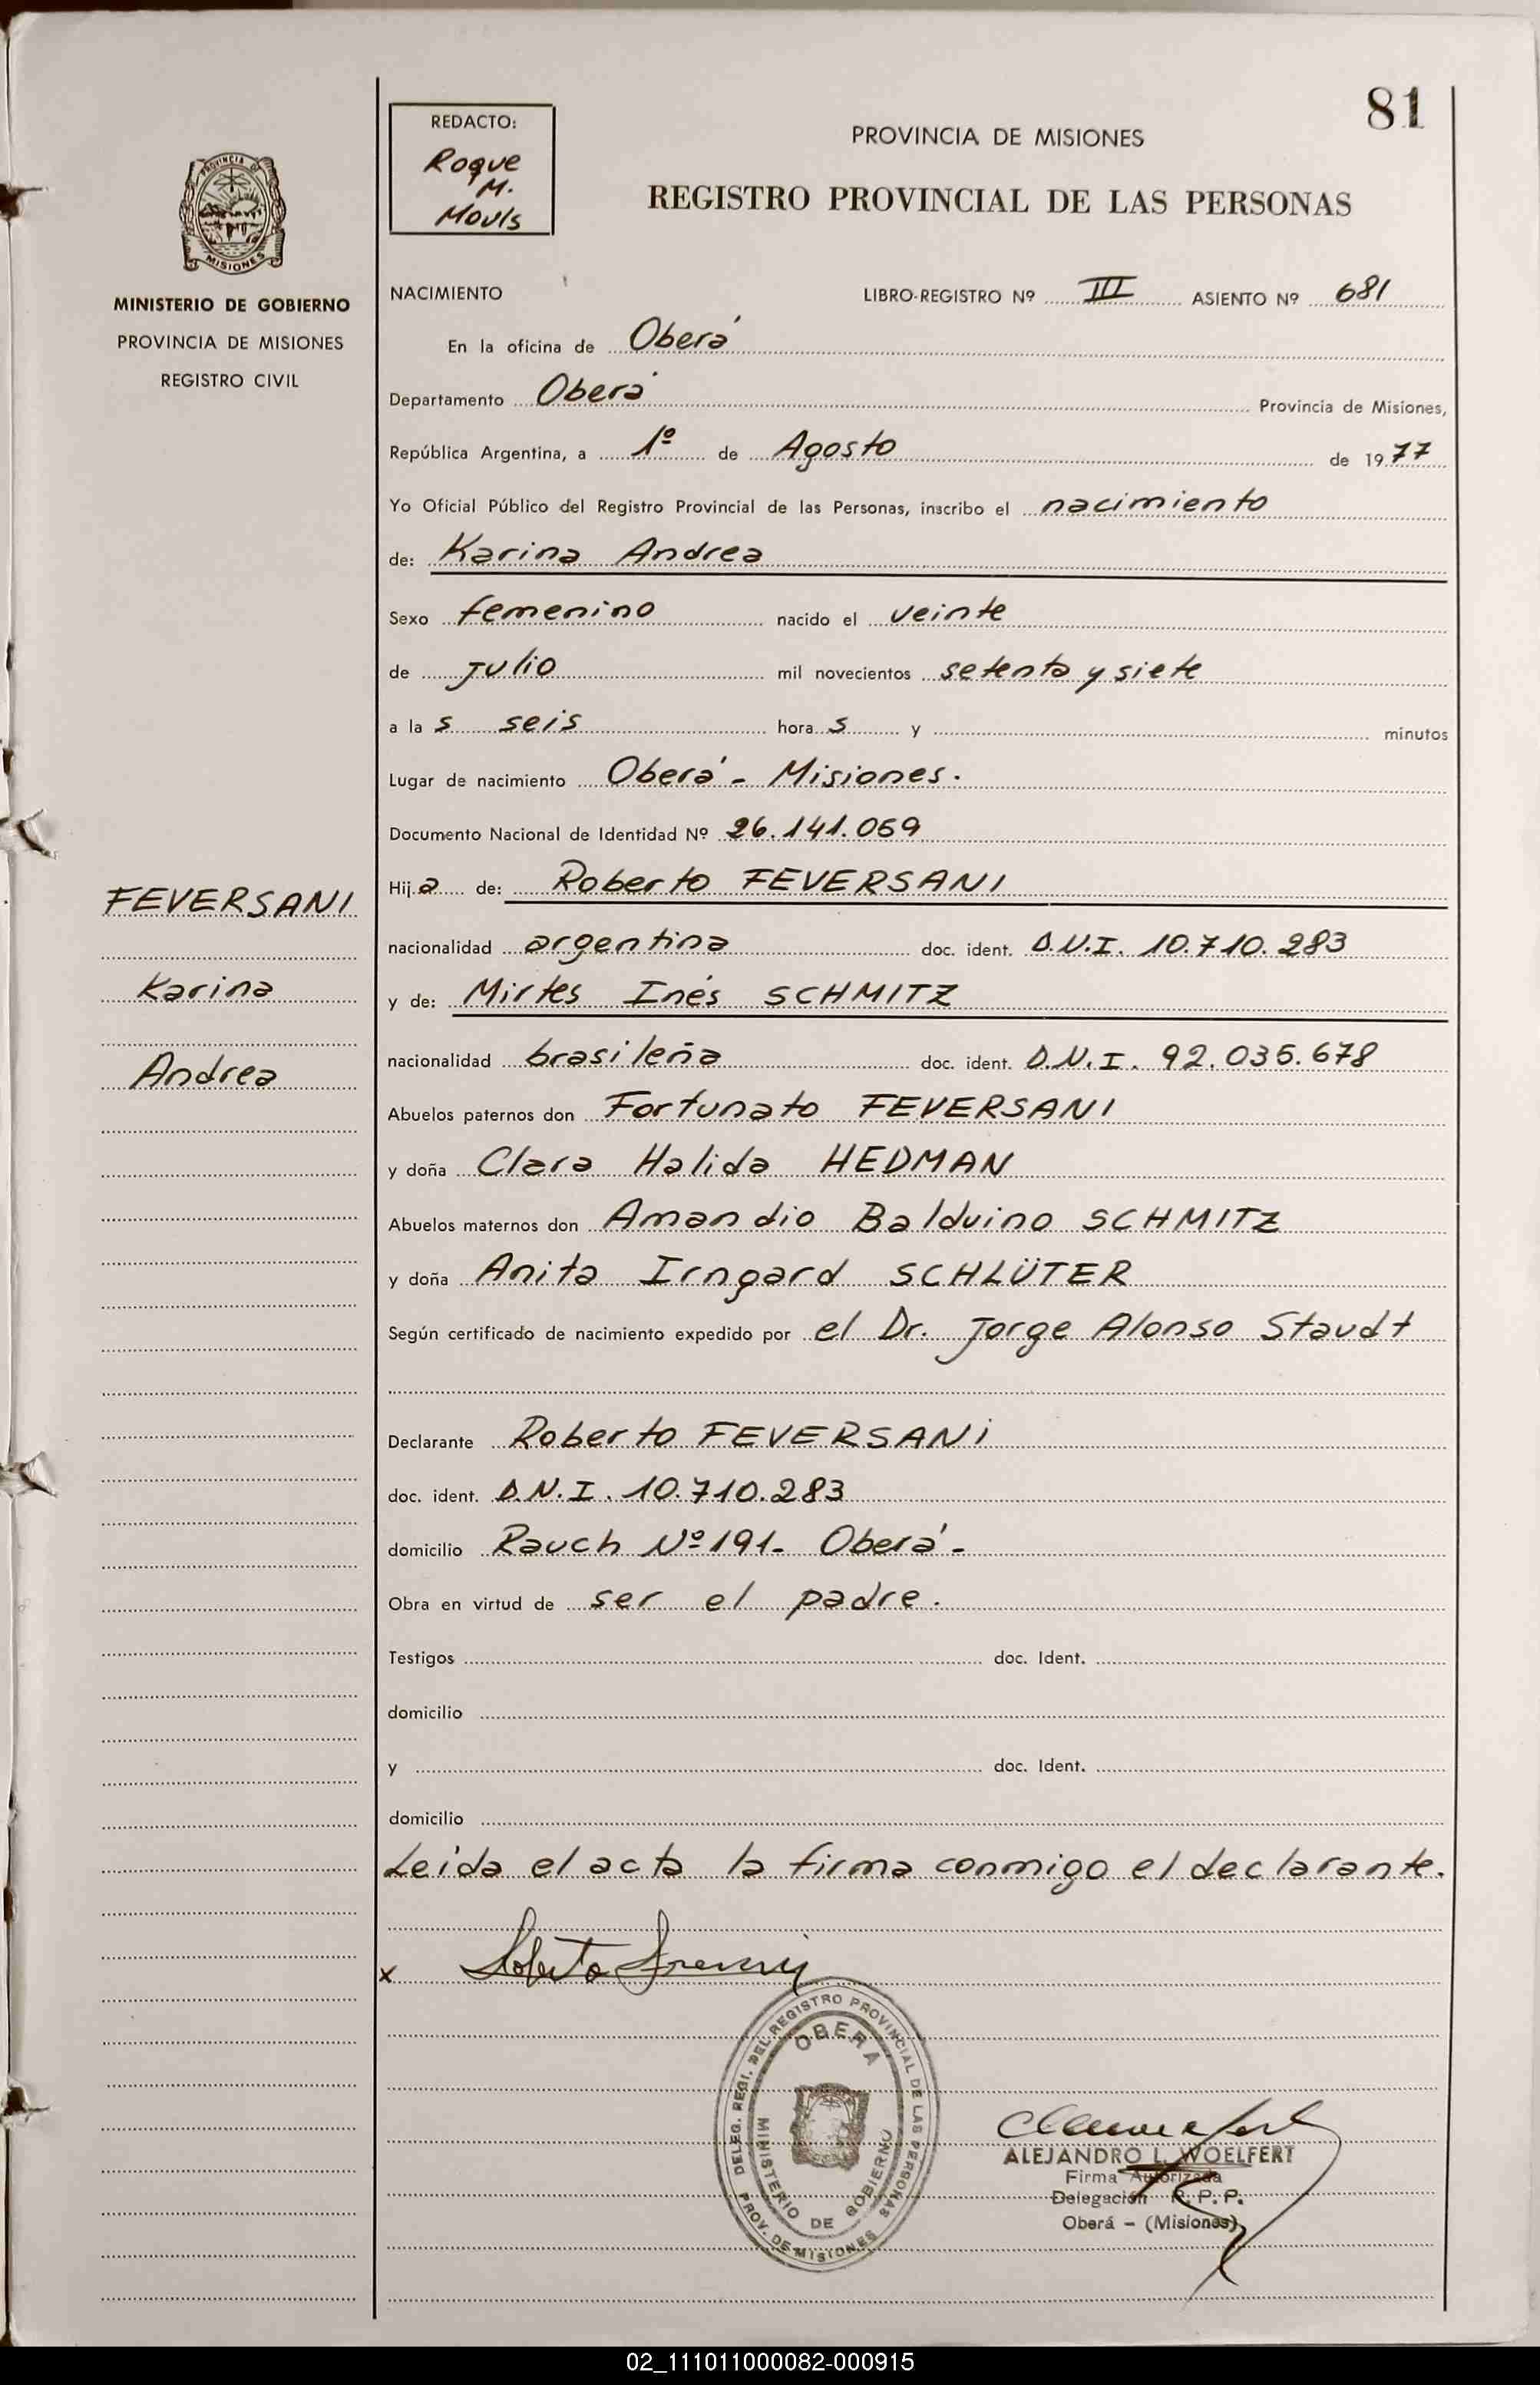 81
REDACTO:
Roque
M.
Mouls
PROVINCIA DE MISIONES
REGISTRO PROVINCIAL DE LAS PERSONAS
PROVINCIA DE
MISIONES
MINISTERIO DE GOBIERNO
PROVINCIA DE MISIONES
REGISTRO CIVIL
NACIMIENTO LIBRO-REGISTRO Nº III ASIENTO Nº 681
En la oficina de Oberá
Departamento Oberá Provincia de Misiones,
República Argentina, a 1º de Agosto de 1977
Yo Oficial Público del Registro Provincial de las Personas, inscribo el nacimiento
de: Karina Andrea
Sexo femenino nacido el veinte
de julio mil novecientos setenta y siete
a la s seis hora s y minutos
Lugar de nacimiento Oberá - Misiones.
Documento Nacional de Identidad Nº 26.141.059
FEVERSANI
Karina
Andrea
Hija de: Roberto FEVERSANI
nacionalidad argentina doc. ident. D.N.I. 10.710.283
y de: Mirtes Inés SCHMITZ
nacionalidad brasileña doc. ident. D.N.I. 92.035.678
Abuelos paternos don Fortunato FEVERSANI
y doña Clara Halida HEDMAN
Abuelos maternos don Amandio Balduino SCHMITZ
y doña Anita Irngard SCHLÜTER
Según certificado de nacimiento expedido por el Dr. Jorge Alonso Staudt
Declarante Roberto FEVERSANi
doc. ident. D.N.I. 10.710.283
domicilio Rauch Nº 191- Oberá-
Obra en virtud de ser el padre.
Testigos doc. Ident.
domicilio
y doc. Ident.
domicilio
Leída el acta la firma conmigo el declarante.
x Roberto
DELEG. REGI. DEL REGISTRO PROVINCIAL DE LAS PERSONAS
PROV. DE MISIONES
OBERA
MINISTERIO DE GOBIERNO
ALEJANDRO L. WOELFERT
Firma Autorizada
Delegación R. P. P.
Oberá - (Misiones)
02_111011000082-000915